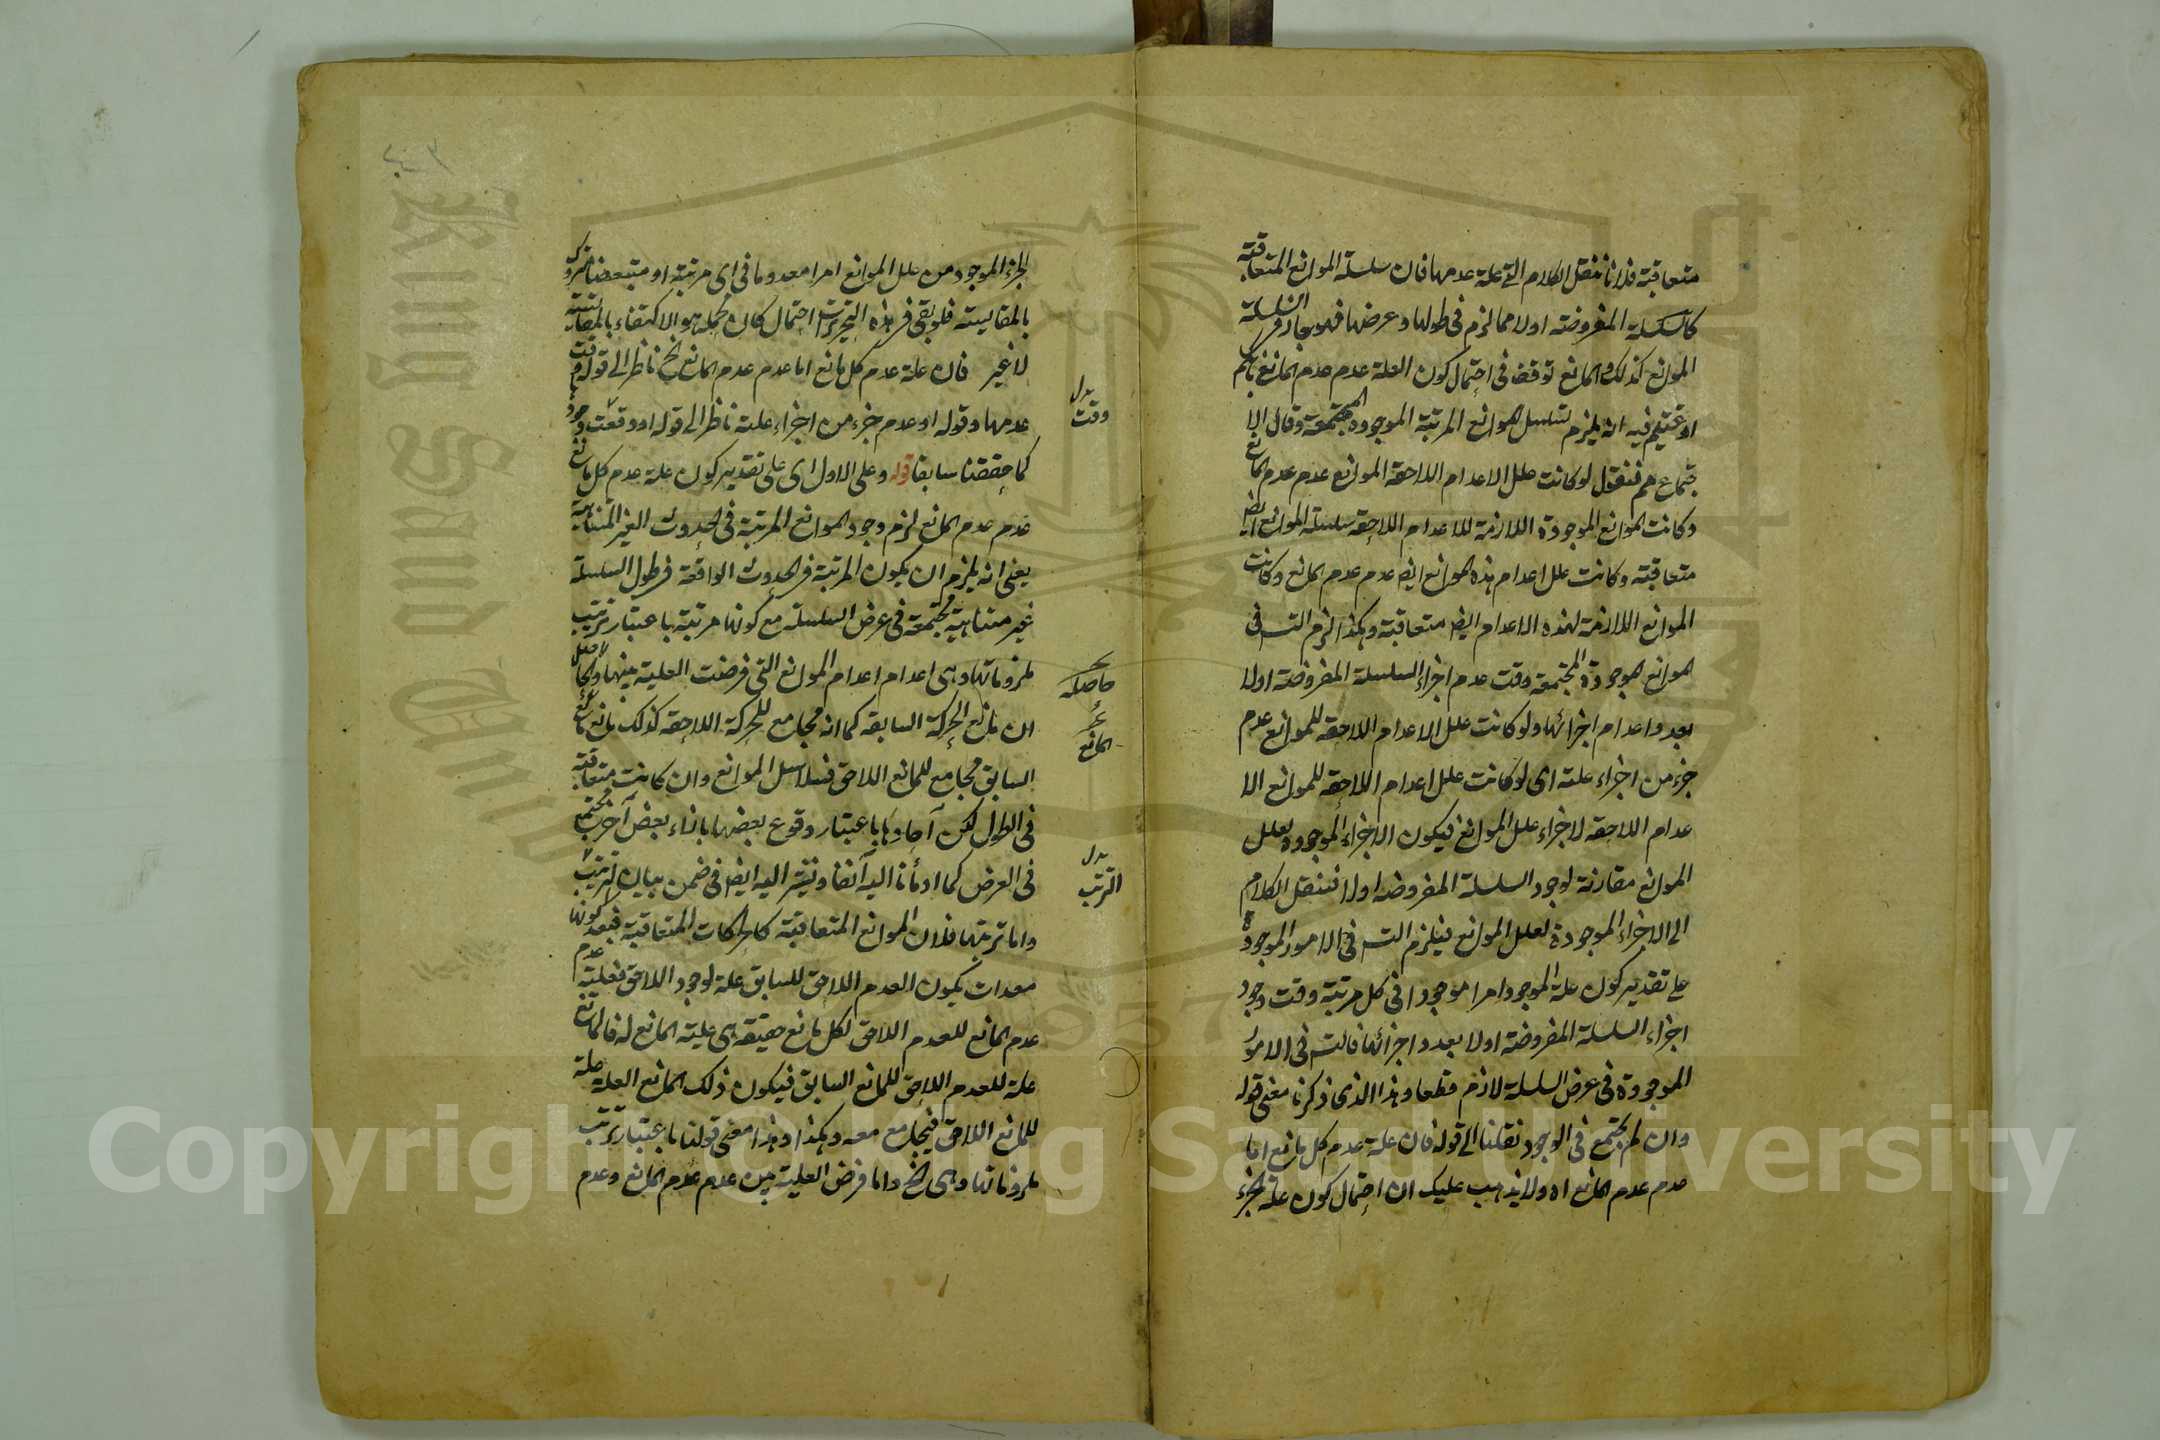 متعاقبة فلانا ننقل الكلام الى علة عدمها فان سلسلة الموانع المتعاقبة
كالسلسلة المفروضة اولا مما لزم فى طولها وعرضها فهو جار فى السلسلة
الموانع كذلك والمانع توقف فى احتمال كون العلة عدم عدم المانع
فيه انه يلزم تسلسل الموانع المرتبة الموجودة المجتمعة وقال الا
جتماع فنقول لو كانت علل الاعدام اللاحقة الموانع عدم عدم المانع
وكانت الموانع الموجودة اللازمة للاعدام اللاحقة سلسلة الموانع ايضا
متعاقبة وكانت علل اعدام هذه الموانع ايضا عدم عدم المانع وكانت
الموانع اللازمة لهذه الاعدام ايضا متعاقبة وهكذا لزم التس فى
الموانع الموجودة المجتمعة وقت عدم اجزاء السلسلة المفروضة اولا
بعدد اعدام اجزائها ولو كانت علل الاعدام اللاحقة للموانع عدم
جزء من اجزاء علته اى لو كانت علل اعدام اللاحقة للموانع الا
عدام اللاحقة لاجزاء علل الموانع فيكون الاجزاء الموجودة لعلل
الموانع مقارنة لوجود السلسلة المفروضة اولا فننقل الكلام
الى الاجزاء الموجودة لعلل الموانع فيلزم التس فى الامور الموجودة
على تقدير كون علة الموجود امرا موجودا فى كل مرتبة وقت وجود
اجزاء السلسلة المفروضة اولا بعدد اجزائها فالتس فى الامور
الموجودة فى عرض السلسلة لازم قطعا وهذا الذى ذكرنا معنى قوله
وان لم يجتمع فى الوجود نقلنا الى قوله فان علة عدم كل مانع اما
عدم عدم المانع اه ولا يذهب عليك ان احتمال كون علة الجزء
الجزء الموجود من علل الموانع امرا معدوما فى اى مرتبة او متبعضا
بالمقايسة فلو بقى فى هذه التحريرات احتمال كان محله هو الاكتفاء بالمقايسة
لا غير فان علة عدم كل مانع اما عدم عدم المانع الخ ناظر الى قوله وقت
عدمها وقوله او عدم جزء من اجزاء علته ناظر الى قوله او وقت وجود
كما حققنا سابقا قوله وعلى الاول اى على تقدير كون علة عدم كل مانع
عدم عدم المانع لزم وجود الموانع المرتبة فى الحدوث الغير المتناهية
يعنى انه يلزم ان يكون المرتبة فى الحدوث الواقعة فى طول السلسلة
غير متناهية مجتمعة فى عرض السلسلة مع كونها مرتبة باعتبار ترتب
ملزوماتها وهى اعدام اعدام الموانع التى فرضت العلية بينها والحاصل
ان مانع الحركة السابقة كما انه مجامع للحركة اللاحقة كذلك مانع مانع
السابق مجامع للمانع اللاحق فسلاسل الموانع وان كانت متعاقبة
فى الطول لكن آحادها باعتبار وقوع بعضها بازاء بعض آخر مجتمع
فى العرض كما اومأنا اليه آنفا ونشير اليه ايضا فى ضمن بيان الترتيب
واما ترتبها فلان الموانع المتعاقبة كالحركات المتعاقبة فبعد كونها
معدات يكون العدم اللاحق للسابق علة لوجود اللاحق فعلية عدم
عدم المانع للعدم اللاحق لكل مانع حقيقة هى علية المانع له فالمانع
علة للعدم اللاحق للمانع السابق فيكون ذلك المانع العلة علة
للمانع اللاحق فيجامع معه وهكذا وهذا معنى قولنا باعتبار ترتب
ملزوماتها وهى الخ واما فرض العلية بين عدم عدم المانع وعدم
بدل
وقت
حاصله
المانع
بدل
الترتب
Copyright © King Saud University
King Saud University
1957